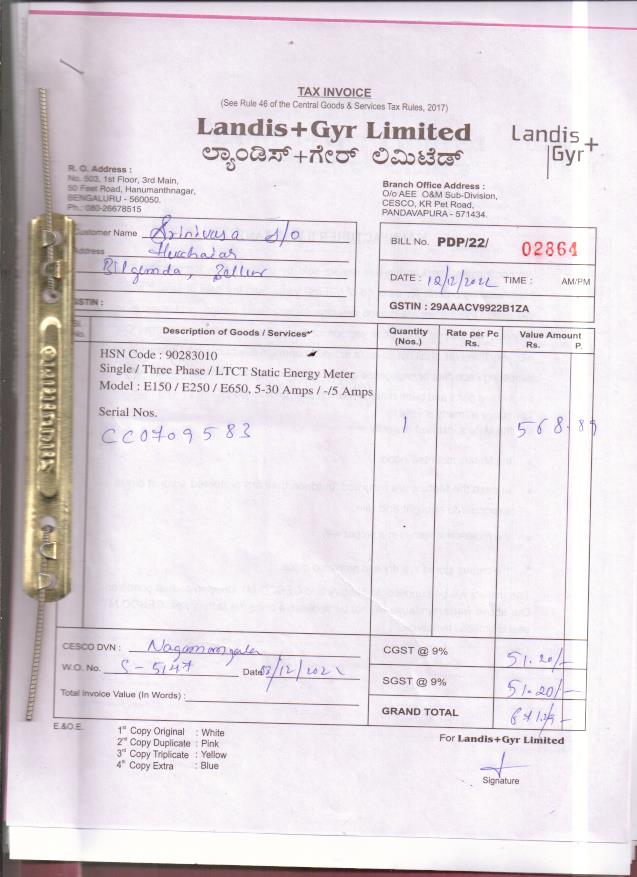 TAX INVOICE
(See Rule 46 of the Central Goods & Services Tax Rules, 2017)
Landis+Gyr Limited
ಲ್ಯಾಂಡಿಸ್+ಗೇರ್ ಲಿಮಿಟೆಡ್
Landis+
Gyr
R. O. Address :
No. 503, 1st Floor, 3rd Main,
50 Feet Road, Hanumanthnagar,
BENGALURU - 560050.
Ph.: 080-26678515
Branch Office Address :
O/o AEE O&M Sub-Division,
CESCO, KR Pet Road,
PANDAVAPURA - 571434.
Customer Name Srinivasa S/o
Address
Bellur
GSTIN :
BILL No. PDP/22/ 02864
DATE : 12/12/2022 TIME : AM/PM
GSTIN : 29AAACV9922B1ZA
No. Description of Goods / Services Quantity (Nos.) Rate per Pc Rs. Value Amount Rs. P.
HSN Code : 90283010
Single / Three Phase / LTCT Static Energy Meter
Model : E150 / E250 / E650, 5-30 Amps / -/5 Amps
Serial Nos.
CC0709583 1 568.89
CESCO DVN : Nagamangala
W.O. No. S-5147 Date /12/2022
Total Invoice Value (In Words) :
CGST @ 9% 51.20/-
SGST @ 9% 51.20/-
GRAND TOTAL
E.&O.E.
1st Copy Original : White
2nd Copy Duplicate : Pink
3rd Copy Triplicate : Yellow
4th Copy Extra : Blue
For Landis+Gyr Limited
Signature